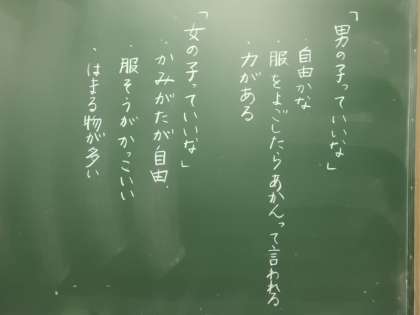 「男の子っていいな」
・自由かな
・服をよごしたらあかんって言われる
・力がある
「女の子っていいな」
・かみがたが自由
・服そうがかっこいい
・はまる物が多い